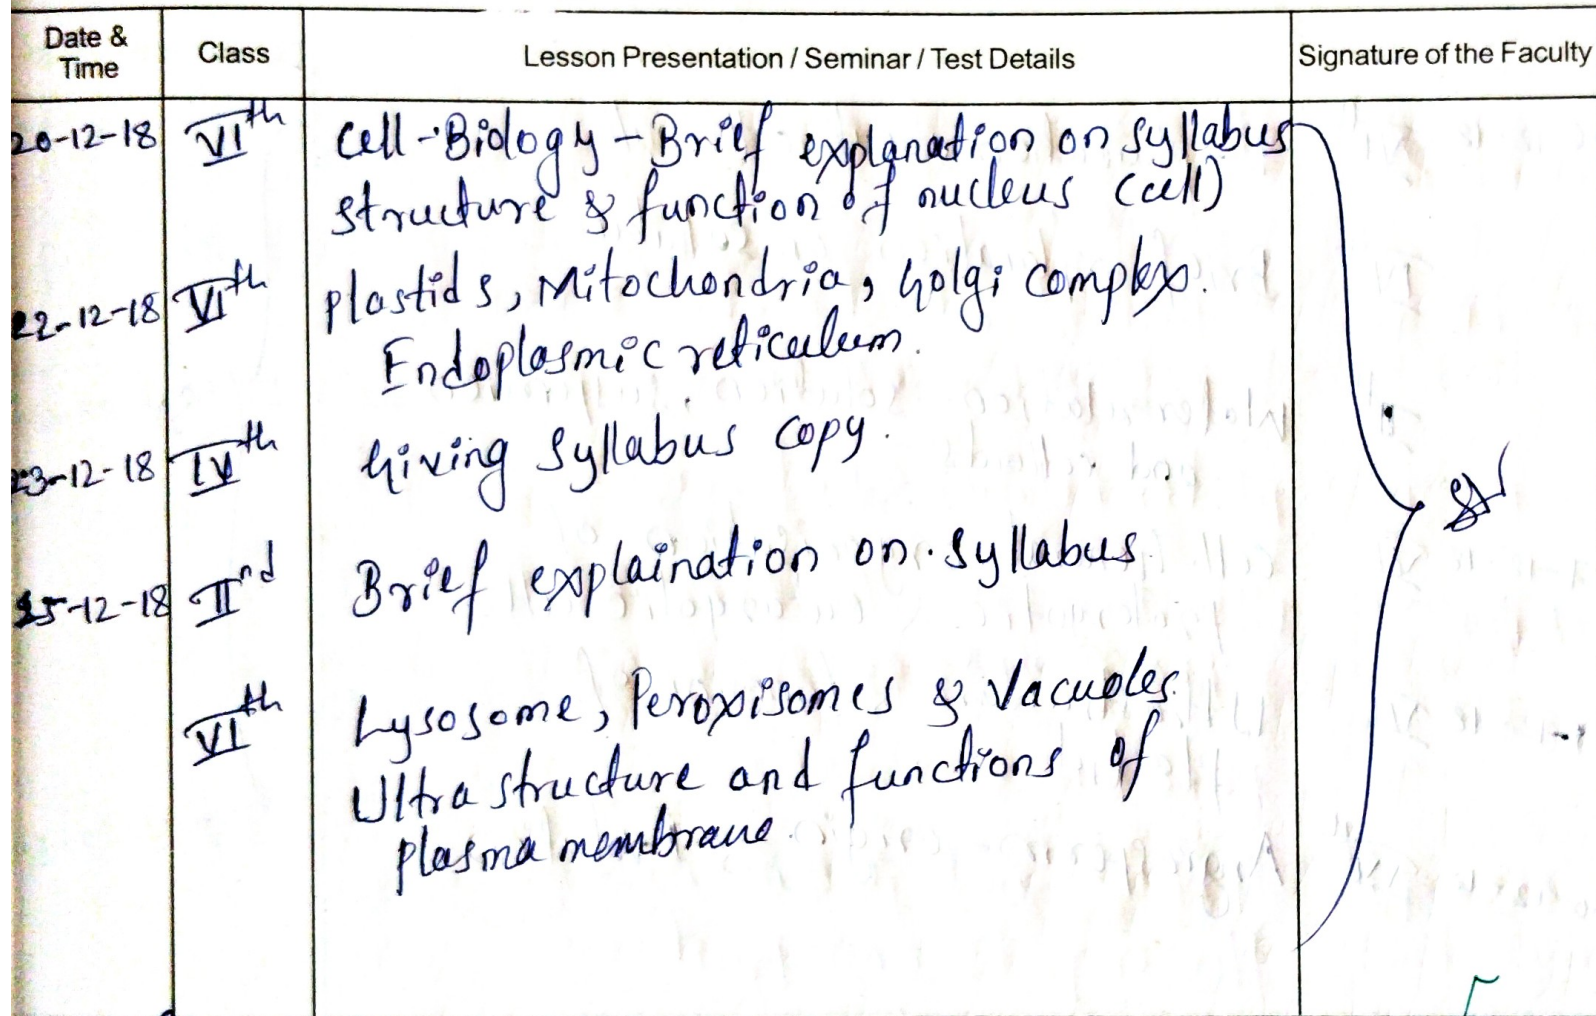 Date & Time Class Lesson Presentation / Seminar / Test Details Signature of the Faculty
20-12-18 VIth Cell-Biology - Brief explanation on syllabus
structure & function of nucleus (cell)
22-12-18 VIth plastids, Mitochondria, Golgi complex.
Endoplasmic reticulum.
23-12-18 IVth Giving syllabus copy.
25-12-18 IInd Brief explaination on syllabus
VIth Lysosome, Peroxisomes & Vacuoles
Ultra structure and functions of
plasma membrane.